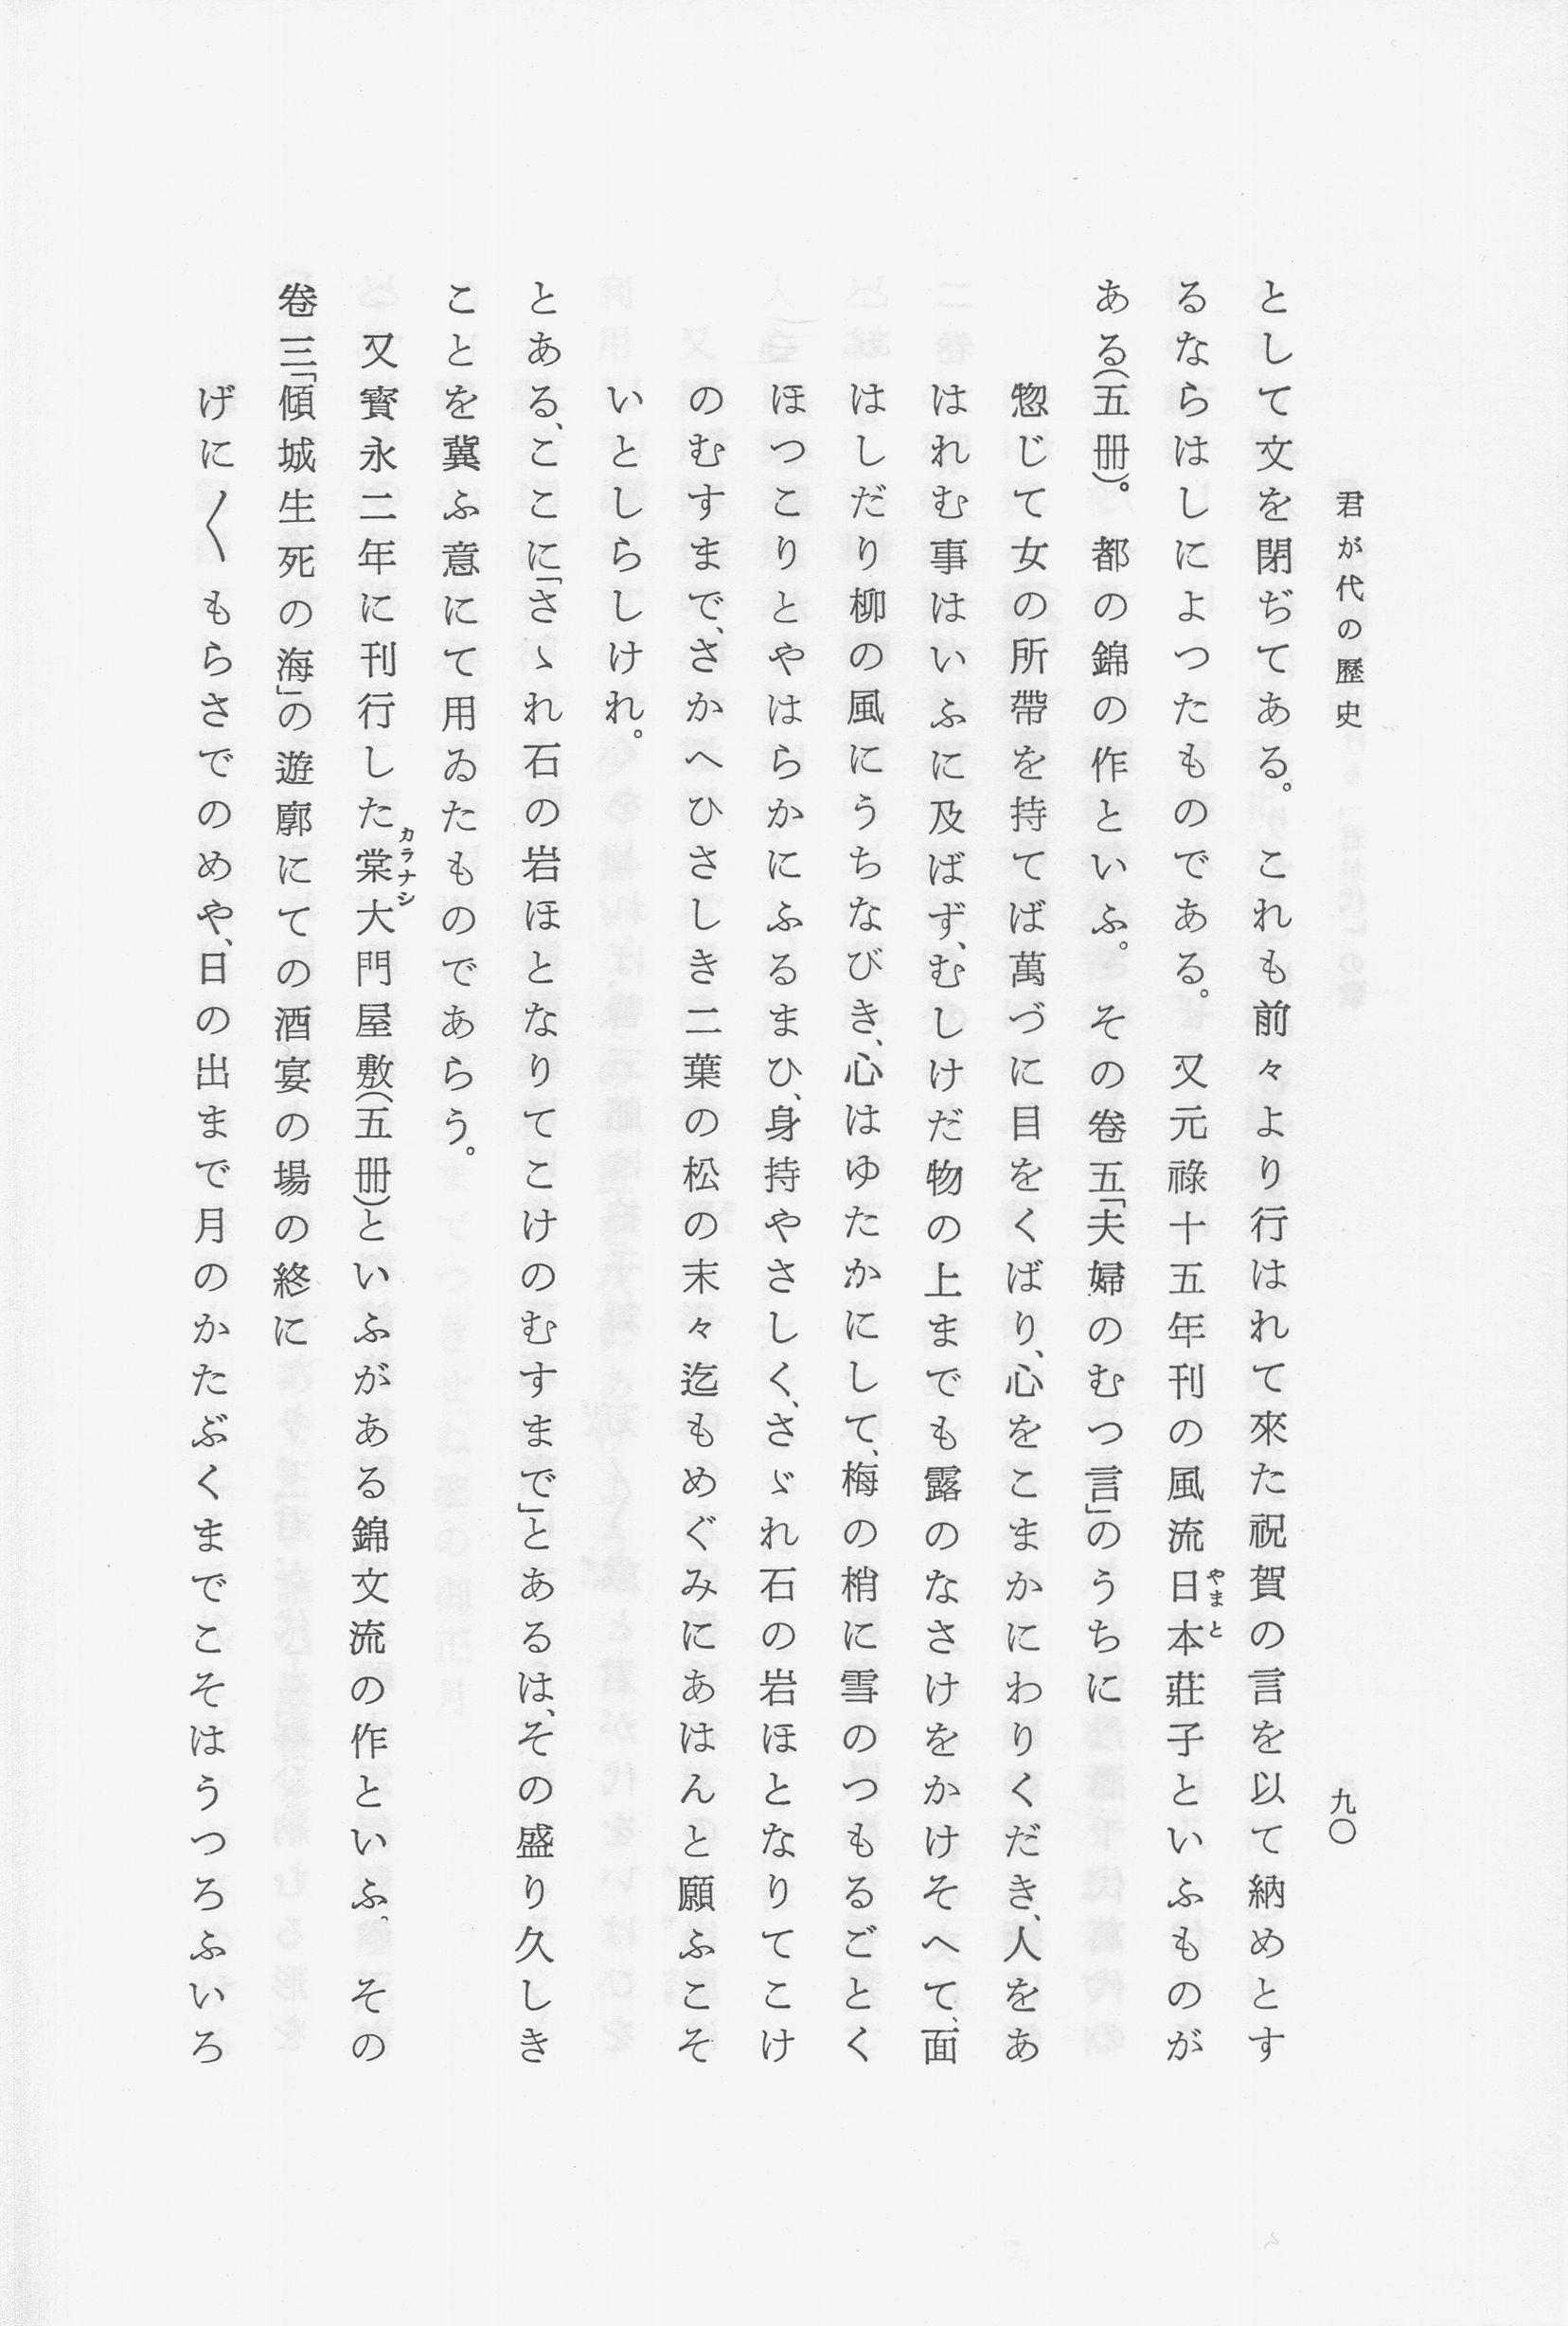 君が代の歷史
九〇
として文を閉ぢてある。これも前々より行はれて來た祝賀の言を以て納めとす
るならはしによつたものである。又元祿十五年刊の風流日本莊子といふものが
やまと
ある(五册)。都の錦の作といふ。その卷五「夫婦のむつ言」のうちに
惣じて女の所帶を持てば萬づに目をくばり、心をこまかにわりくだき、人をあ
はれむ事はいふに及ばず、むしけだ物の上までも露のなさけをかけそへて、面
はしだり柳の風にうちなびき、心はゆたかにして、梅の梢に雪のつもるごとく
ほつこりとやはらかにふるまひ、身持やさしく、さゞれ石の岩ほとなりてこけ
のむすまで、さかへひさしき二葉の松の末々迄もめぐみにあはんと願ふこそ
いとしらしけれ。
とある、ここに「さゝれ石の岩ほとなりてこけのむすまで」とあるは、その盛り久しき
ことを冀ふ意にて用ゐたものであらう。
又寳永二年に刊行した棠大門屋敷(五册)といふがある錦文流の作といふ、その
カラナシ
卷三「傾城生死の海」の遊廓にての酒宴の場の終に
げに〳〵もらさでのめや、日の出まで月のかたぶくまでこそはうつろふいろ